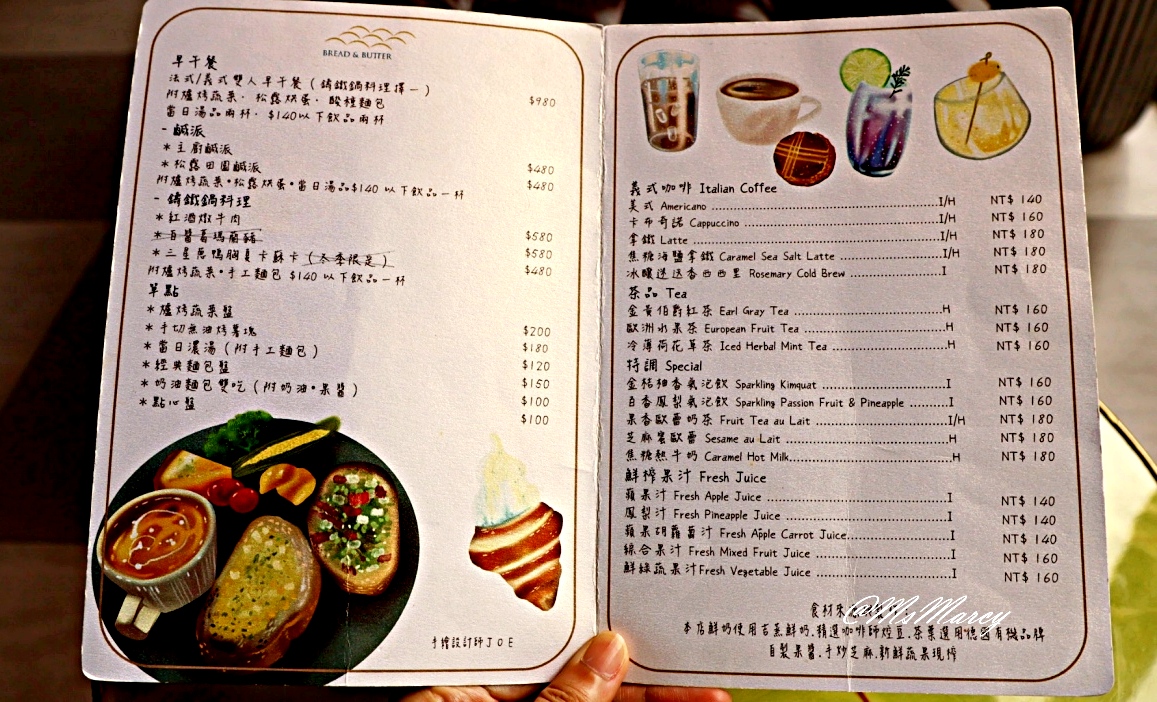 BREAD & BUTTER
早午餐
法式/義式雙人早午餐(鑄鐵鍋料理擇一)
附爐烤蔬菜．松露烘蛋．酸種麵包 $980
當日湯品兩杯．$140以下飲品兩杯
-鹹派
*主廚鹹派 $480
*松露田園鹹派 $480
附爐烤蔬菜•松露烘蛋•當日湯品$140以下飲品一杯
-鑄鐵鍋料理
*紅酒燉牛肉 $580
*白醬葛瑪蘭豬 $580
*三星蔥鴨胸夏卡蘇卡(冬季限定) $480
附爐烤蔬菜•手工麵包 $140以下飲品一杯
單點
*爐烤蔬菜盤 $200
*手切無油烤薯塊 $180
*當日濃湯(附手工麵包) $120
*經典麵包盤 $150
*奶油麵包雙吃(附奶油•果醬) $100
*點心盤 $100
手繪設計師JOE
義式咖啡 Italian Coffee
美式 Americano I/H NT$ 140
卡布奇諾 Cappuccino I/H NT$ 160
拿鐵 Latte I/H NT$ 180
焦糖海鹽拿鐵 Caramel Sea Salt Latte I/H NT$ 180
冰釀迷迭香西西里 Rosemary Cold Brew I NT$ 180
茶品 Tea
金黃伯爵紅茶 Earl Gray Tea H NT$ 160
歐洲水果茶 European Fruit Tea H NT$ 160
冷薄荷花草茶 Iced Herbal Mint Tea H NT$ 160
特調 Special
金桔柚香氣泡飲 Sparkling Kimquat I NT$ 160
百香鳳梨氣泡飲 Sparkling Passion Fruit & Pineapple I NT$ 160
果香歐蕾奶茶 Fruit Tea au Lait I/H NT$ 180
芝麻岩歐蕾 Sesame au Lait H NT$ 180
焦糖熱牛奶 Caramel Hot Milk H NT$ 180
鮮榨果汁 Fresh Juice
蘋果汁 Fresh Apple Juice I NT$ 140
鳳梨汁 Fresh Pineapple Juice I NT$ 140
蘋果胡蘿蔔汁 Fresh Apple Carrot Juice I NT$ 140
綜合果汁 Fresh Mixed Fruit Juice I NT$ 160
鮮綠蔬果汁Fresh Vegetable Juice I NT$ 160
食材來
@MsMarcy
本店鮮奶使用吉蒸鮮奶.精選咖啡師烘豆.茶葉選用德國有機品牌
自製果醬.手炒芝麻.新鮮蔬果現榨